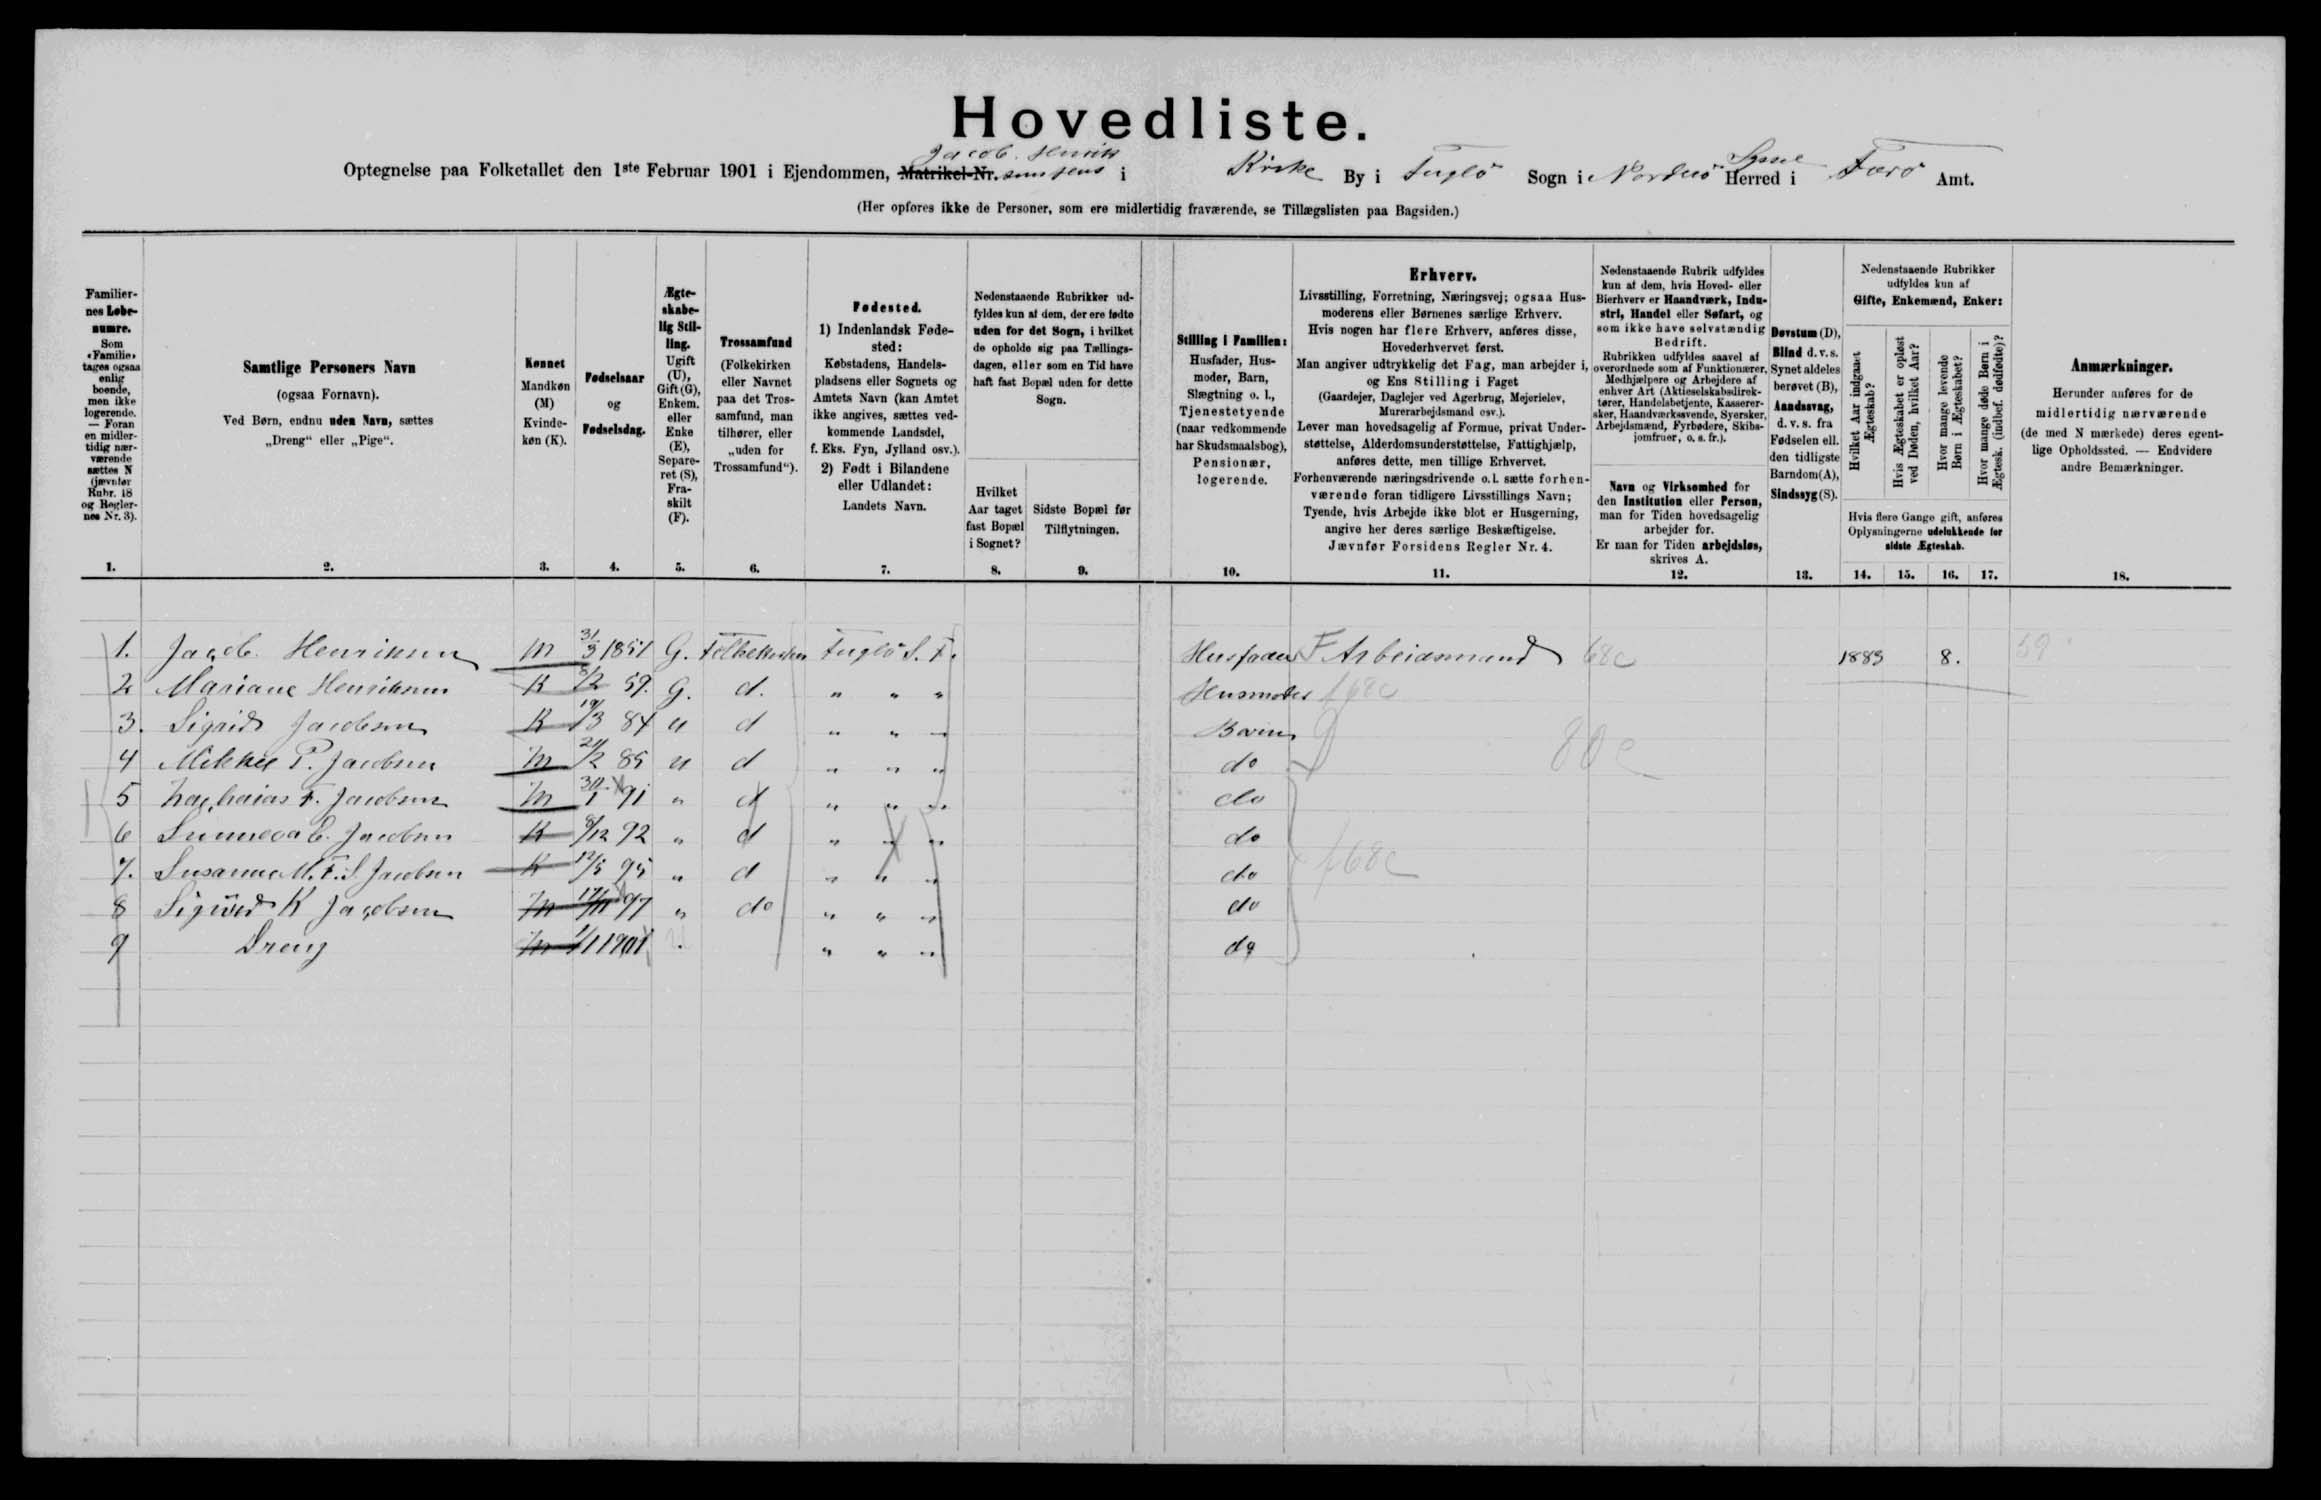 Hovedliste.
Jacob. Henrik
Optegnelse paa Folketallet den 1ste Februar 1901 i Ejendommen, Matrikel-Nr. sensens i Kirke By i Fuglö Sogn i Norderö Syssel Herred i Færö Amt.
(Her opføres ikke de Personer, som ere midlertidig fraværende, se Tillægslisten paa Bagsiden.)
Familier-
nes Løbe-
numre.
Som
«Familie»
tages ogsaa
enlig
boende,
men ikke
logerende.
— Foran
en midler-
tidig nær-
værende
sættes N
(jævnfør
Rubr. 18
og Regler-
nes Nr. 3).
1.
Samtlige Personers Navn
(ogsaa Fornavn).
Ved Børn, endnu uden Navn, sættes
„Dreng“ eller „Pige“.
2.
Kønnet
Mandkøn
(M)
Kvinde-
køn (K).
3.
Fødselsaar
og
Fødselsdag.
4.
Ægte-
skabe-
lig Stil-
ling.
Ugift
(U),
Gift (G),
Enkem.
eller
Enke
(E),
Separe-
ret (S),
Fra-
skilt
(F).
5.
Trossamfund
(Folkekirken
eller Navnet
paa det Tros-
samfund, man
tilhører, eller
„uden for
Trossamfund“).
6.
Fødested.
1) Indenlandsk Føde-
sted:
Købstadens, Handels-
pladsens eller Sognets og
Amtets Navn (kan Amtet
ikke angives, sættes ved-
kommende Landsdel,
f. Eks. Fyn, Jylland osv.).
2) Født i Bilandene
eller Udlandet:
Landets Navn.
7.
Nedenstaaende Rubrikker ud-
fyldes kun af dem, der ere fødte
uden for det Sogn, i hvilket
de opholde sig paa Tællings-
dagen, eller som en Tid have
haft fast Bopæl uden for dette
Sogn.
Hvilket
Aar taget
fast Bopæl
i Sognet?
8.
Sidste Bopæl før
Tilflytningen.
9.
Stilling i Familien:
Husfader, Hus-
moder, Barn,
Slægtning o. l.,
Tjenestetyende
(naar vedkommende
har Skudsmaalsbog),
Pensionær,
logerende.
10.
Erhverv.
Livsstilling, Forretning, Næringsvej; ogsaa Hus-
moderens eller Børnenes særlige Erhverv.
Hvis nogen har flere Erhverv, anføres disse,
Hovederhvervet først.
Man angiver udtrykkelig det Fag, man arbejder i,
og Ens Stilling i Faget
(Gaardejer, Daglejer ved Agerbrug, Mejerielev,
Murerarbejdsmand osv.).
Lever man hovedsagelig af Formue, privat Under-
støttelse, Alderdomsunderstøttelse, Fattighjælp,
anføres dette, men tillige Erhvervet.
Forhenværende næringsdrivende o. l. sætte forhen-
værende foran tidligere Livsstillings Navn;
Tyende, hvis Arbejde ikke blot er Husgerning,
angive her deres særlige Beskæftigelse.
Jævnfør Forsidens Regler Nr. 4.
11.
Nedenstaaende Rubrik udfyldes
kun af dem, hvis Hoved- eller
Bierhverv er Haandværk, Indu-
stri, Handel eller Søfart, og
som ikke have selvstændig
Bedrift.
Rubrikken udfyldes saavel af
overordnede som af Funktionærer,
Medhjælpere og Arbejdere af
enhver Art (Aktieselskabsdirek-
tører, Handelsbetjente, Kasserer-
sker, Haandværkssvende, Syersker,
Arbejdsmænd, Fyrbødere, Skibs-
jomfruer, o. s. fr.).
Navn og Virksomhed for
den Institution eller Person,
man for Tiden hovedsagelig
arbejder for.
Er man for Tiden arbejdsløs,
skrives A.
12.
Døvstum (D),
Blind d. v. s.
Synet aldeles
berøvet (B),
Aandssvag,
d. v. s. fra
Fødselen ell.
den tidligste
Barndom (A),
Sindssyg (S).
13.
Nedenstaaende Rubrikker
udfyldes kun af
Gifte, Enkemænd, Enker:
Hvilket Aar indgaaet
Ægteskab?
Hvis Ægteskabet er opløst
ved Døden, hvilket Aar?
Hvor mange levende
Børn i Ægteskabet?
Hvor mange døde Børn i
Ægtesk. (indbef. dødfødte)?
Hvis flere Gange gift, anføres
Oplysningerne udelukkende for
sidste Ægteskab.
14. 15. 16. 17.
Anmærkninger.
Herunder anføres for de
midlertidig nærværende
(de med N mærkede) deres egent-
lige Opholdssted. — Endvidere
andre Bemærkninger.
18.
1. Jacob. Henriksen M 31/3 1851 G. Folkekirken Fuglö S. F. Husfader F Arbeidsmand 68c 1883 8. 59
2 Mariane Henriksen K 8/2 59. G. d. " " " Husmoder f68c
3. Sigrid Jacobsen K 19/3 84 u d " " " Barn
4 Mikkel P. Jacobsen M 21/2 85 u d " " " do 80c
5 Zachaias F. Jacobsen M 30/1 91 " d " " " do
6 Sunneva E. Jacobsen K 8/12 92 " d " " " do
7. Susanna M. F. S. Jacobsen K 12/5 95 " d " " " do f68c
8 Sigurd K Jacobsen M 17/11 97 " do " " " do
9 Dreng M 1/1 1901 " " " do